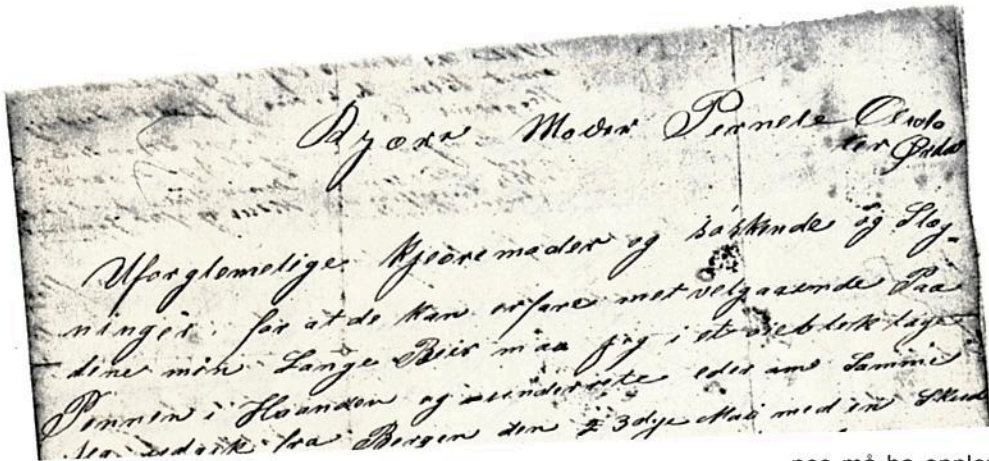 Kjære Moder Pernele Olsda
ter Ørda
Uforglemelige Kjæremoder og søskende og Slæg-
ninger. for at de kan erfare met velgaaende Paa
dene min Lange Reise maa jeg i et øieblik tage
Pennen i Haanden og underrete eder om Samme
Jeg udgik fra Bergen den 3dye Mai med en Skud